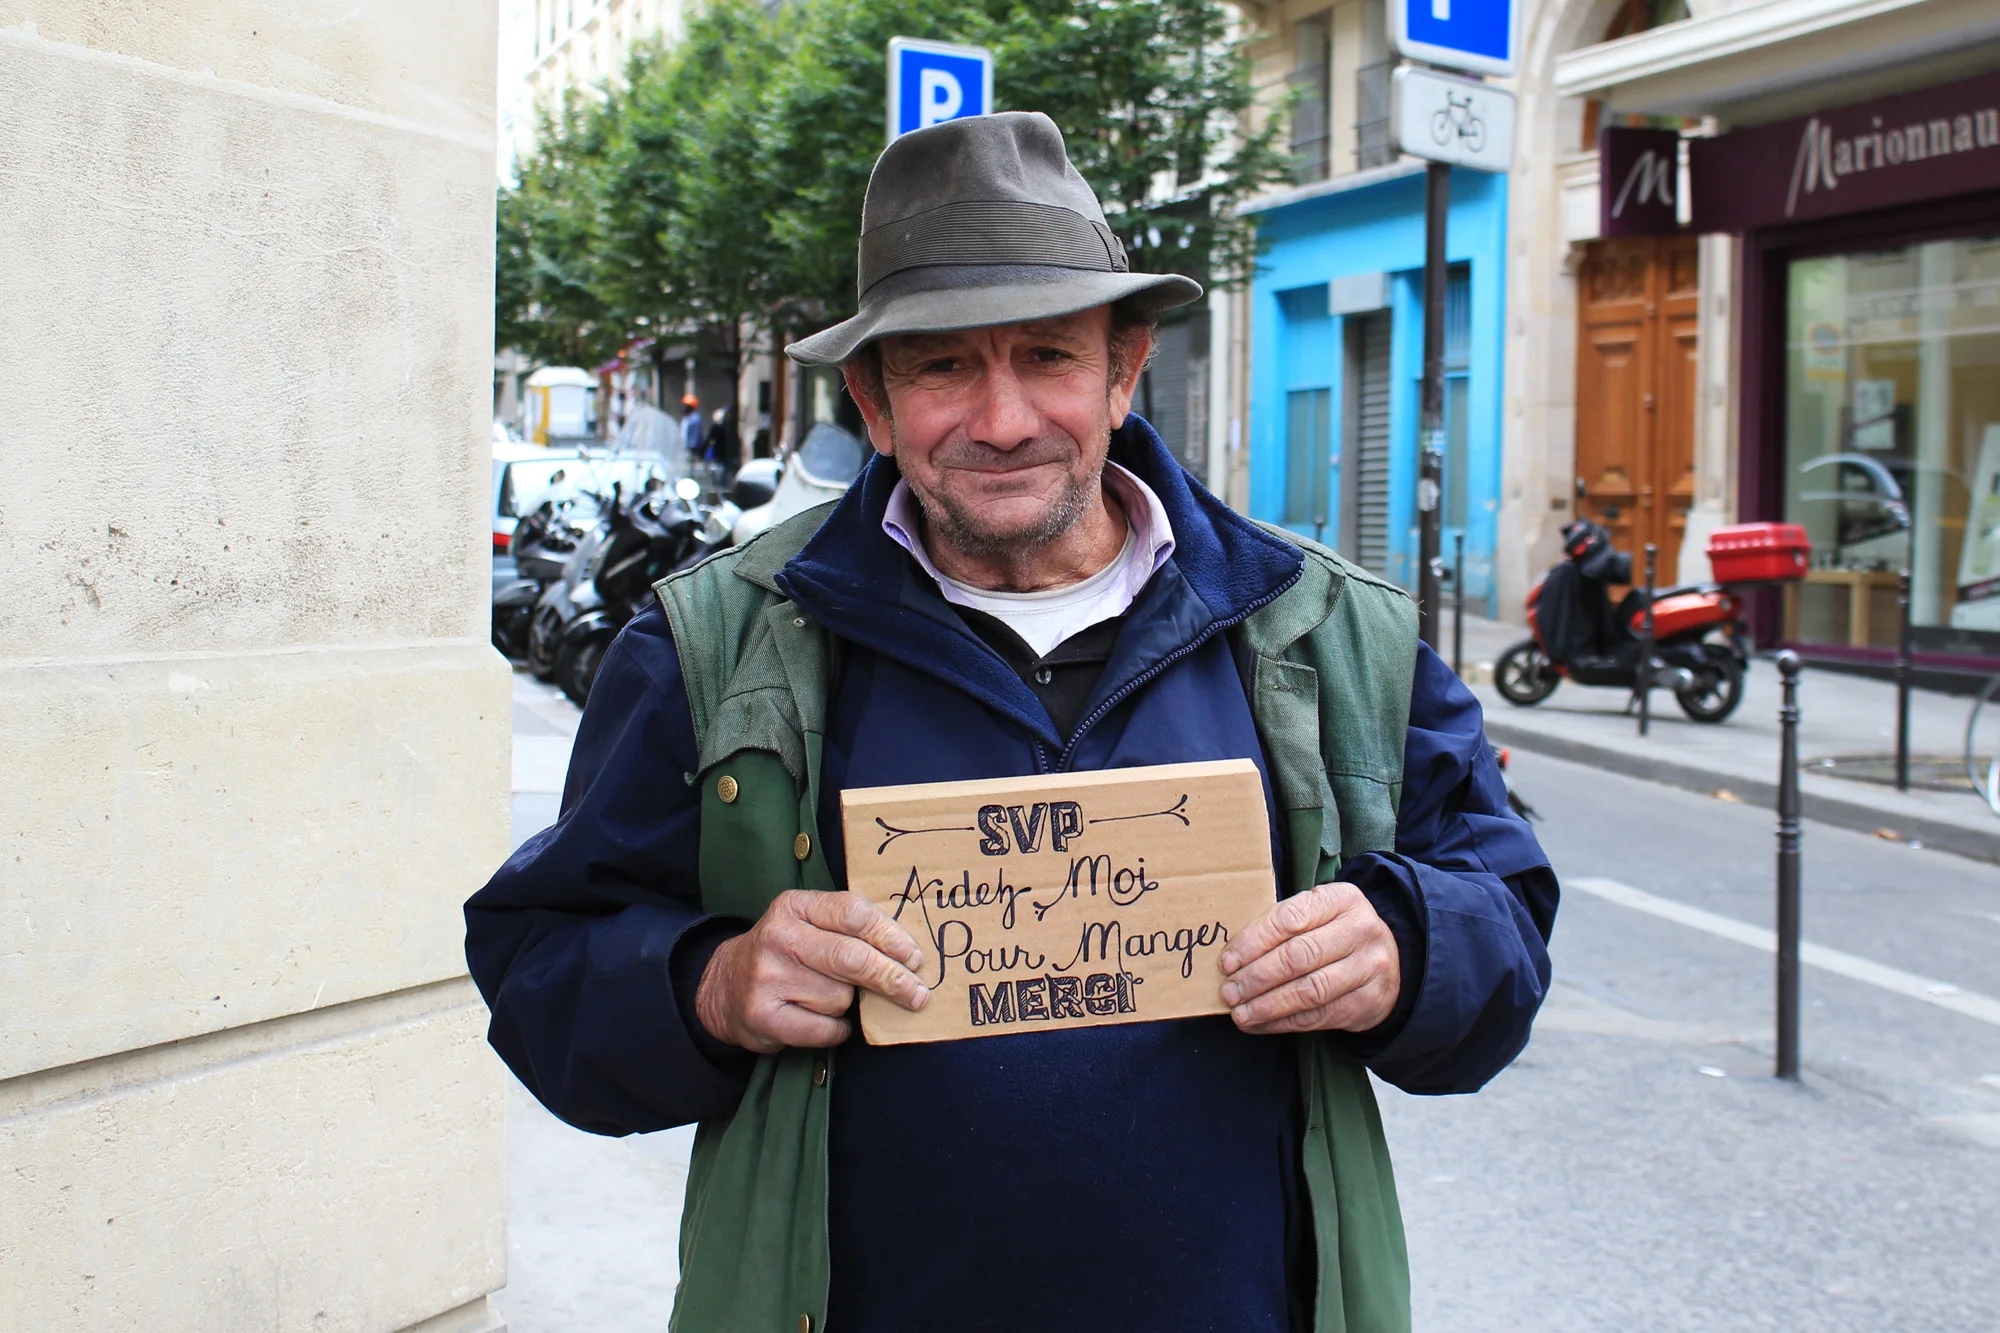 P
M
Marionnau
SVP
Aidez Moi
Pour Manger
MERCI